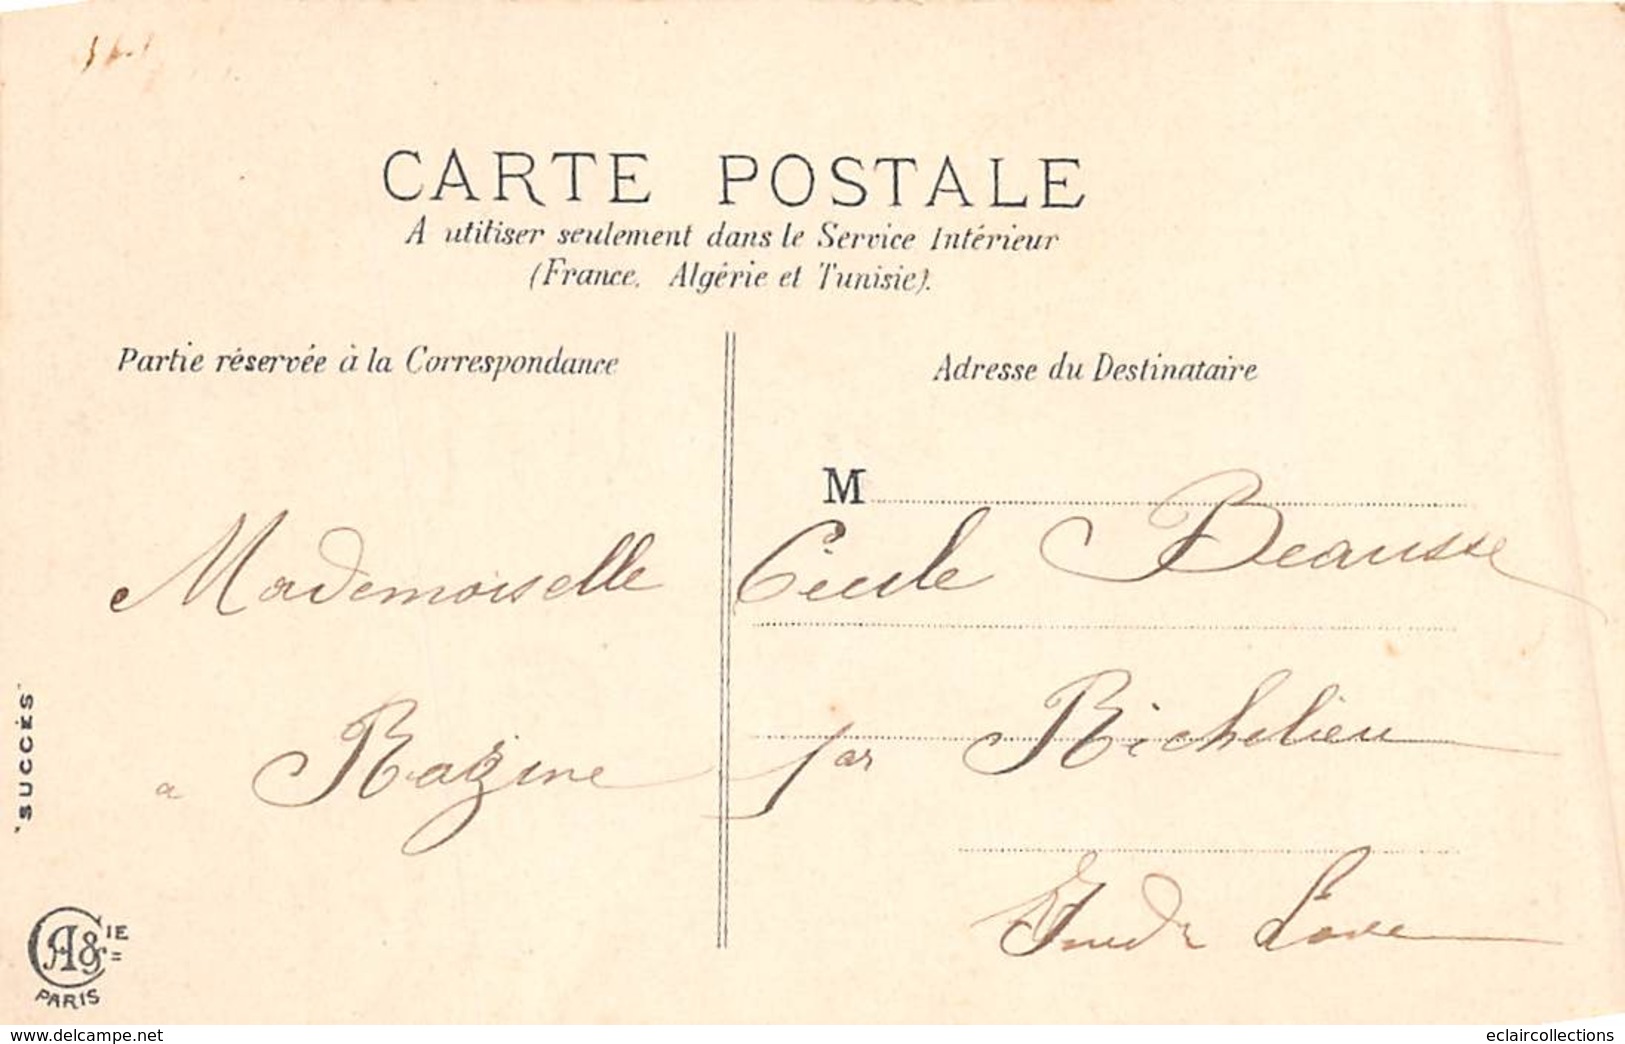 CARTE POSTALE
A utiliser seulement dans le Service Intérieur
(France, Algérie et Tunisie).
Partie réservée à la Correspondance
Adresse du Destinataire
M
Mademoiselle Cécile Beausse
a Razine par Richelieu
Indr Loire
"SUCCÈS"
CA & CIE
PARIS
www.delcampe.net
eclaircollections